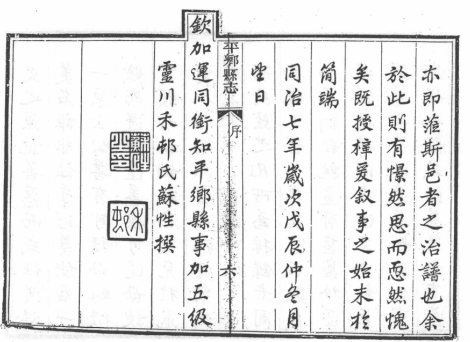 亦即蒞斯邑者之治譜也余
於此則有憬然思而恧然愧
矣既授梓爰叙事之始末於
簡端
同治七年歲次戊辰仲冬月
望日
平鄉縣志
序
六
欽加運同銜知平鄉縣事加五級
靈川禾邨氏蘇性撰
蘇性
之印
禾邨